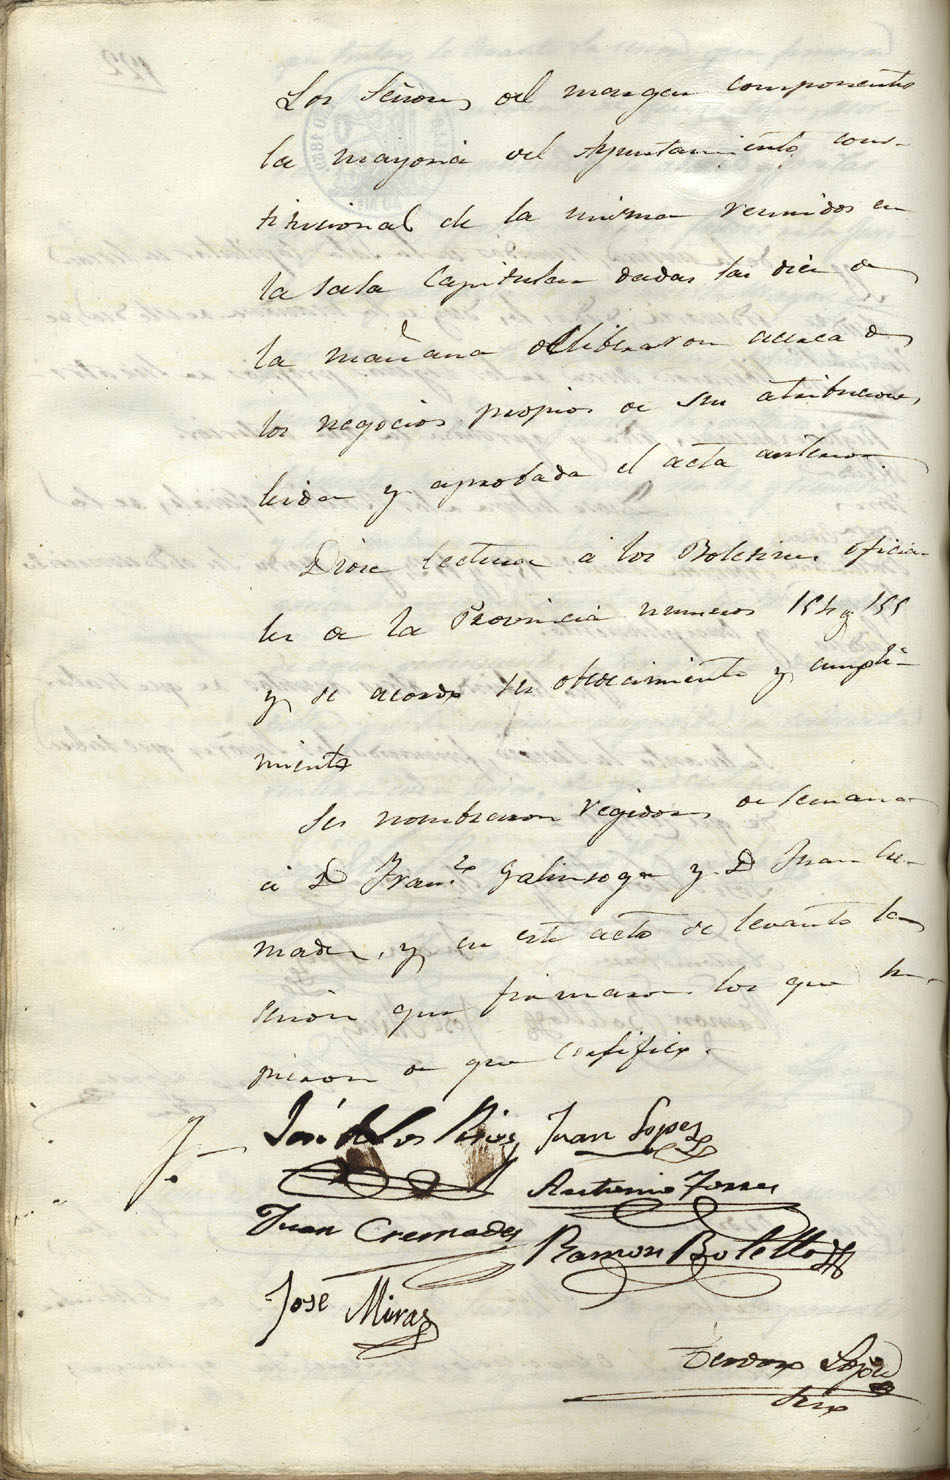 Los Señores del margen componentes
la mayoria del Ayuntamiento cons-
titucional de la misma reunidos en
la Sala Capitular dadas las diez de
la mañana deliberaron acerca de
los negocios propios de su atribucion,
leida y aprobada el acta anterior
Diose lectura á los Boletines oficia-
les de la Provincia numeros 154 y 155
y se acordó su obedecimiento y cumpli-
miento
Se nombraron regidores de semana
á D Fran.co Galinsoga y D Juan Cre-
mades, y en este acto se levantó la
sesion que firmaron los que su-
pieron de que certifico.
José de los Rios Juan Lopez
Antonio Torres
Juan Cremades
Ramon Botella
José Miras
Teodoro Lopez
Srio